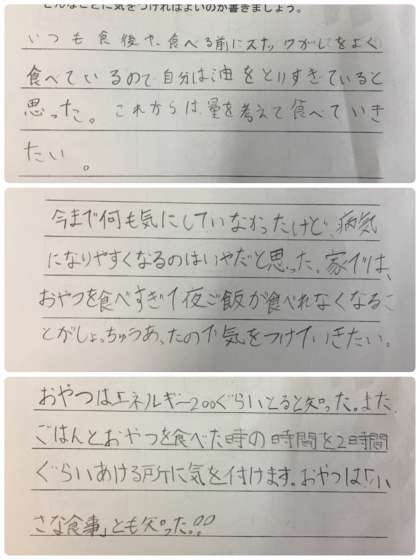 どんなことに気をつければよいのか書きましょう。
いつも食後や、食べる前にスナックがしをよく
食べているので、自分は油をとりすぎていると
思った。これからは、量を考えて食べていき
たい。
今まで何も気にしていなかったけど、病気
になりやすくなるのはいやだと思った。家では、
おやつを食べすぎて夜ご飯が食べれなくなるこ
とがしょっちゅうあったので気をつけていきたい。
おやつはエネルギー200ぐらいとると知った。また、
ごはんとおやつを食べた時の時間を2時間
ぐらいあける所に気を付けます。おやつは「小
さな食事」とも知った!!